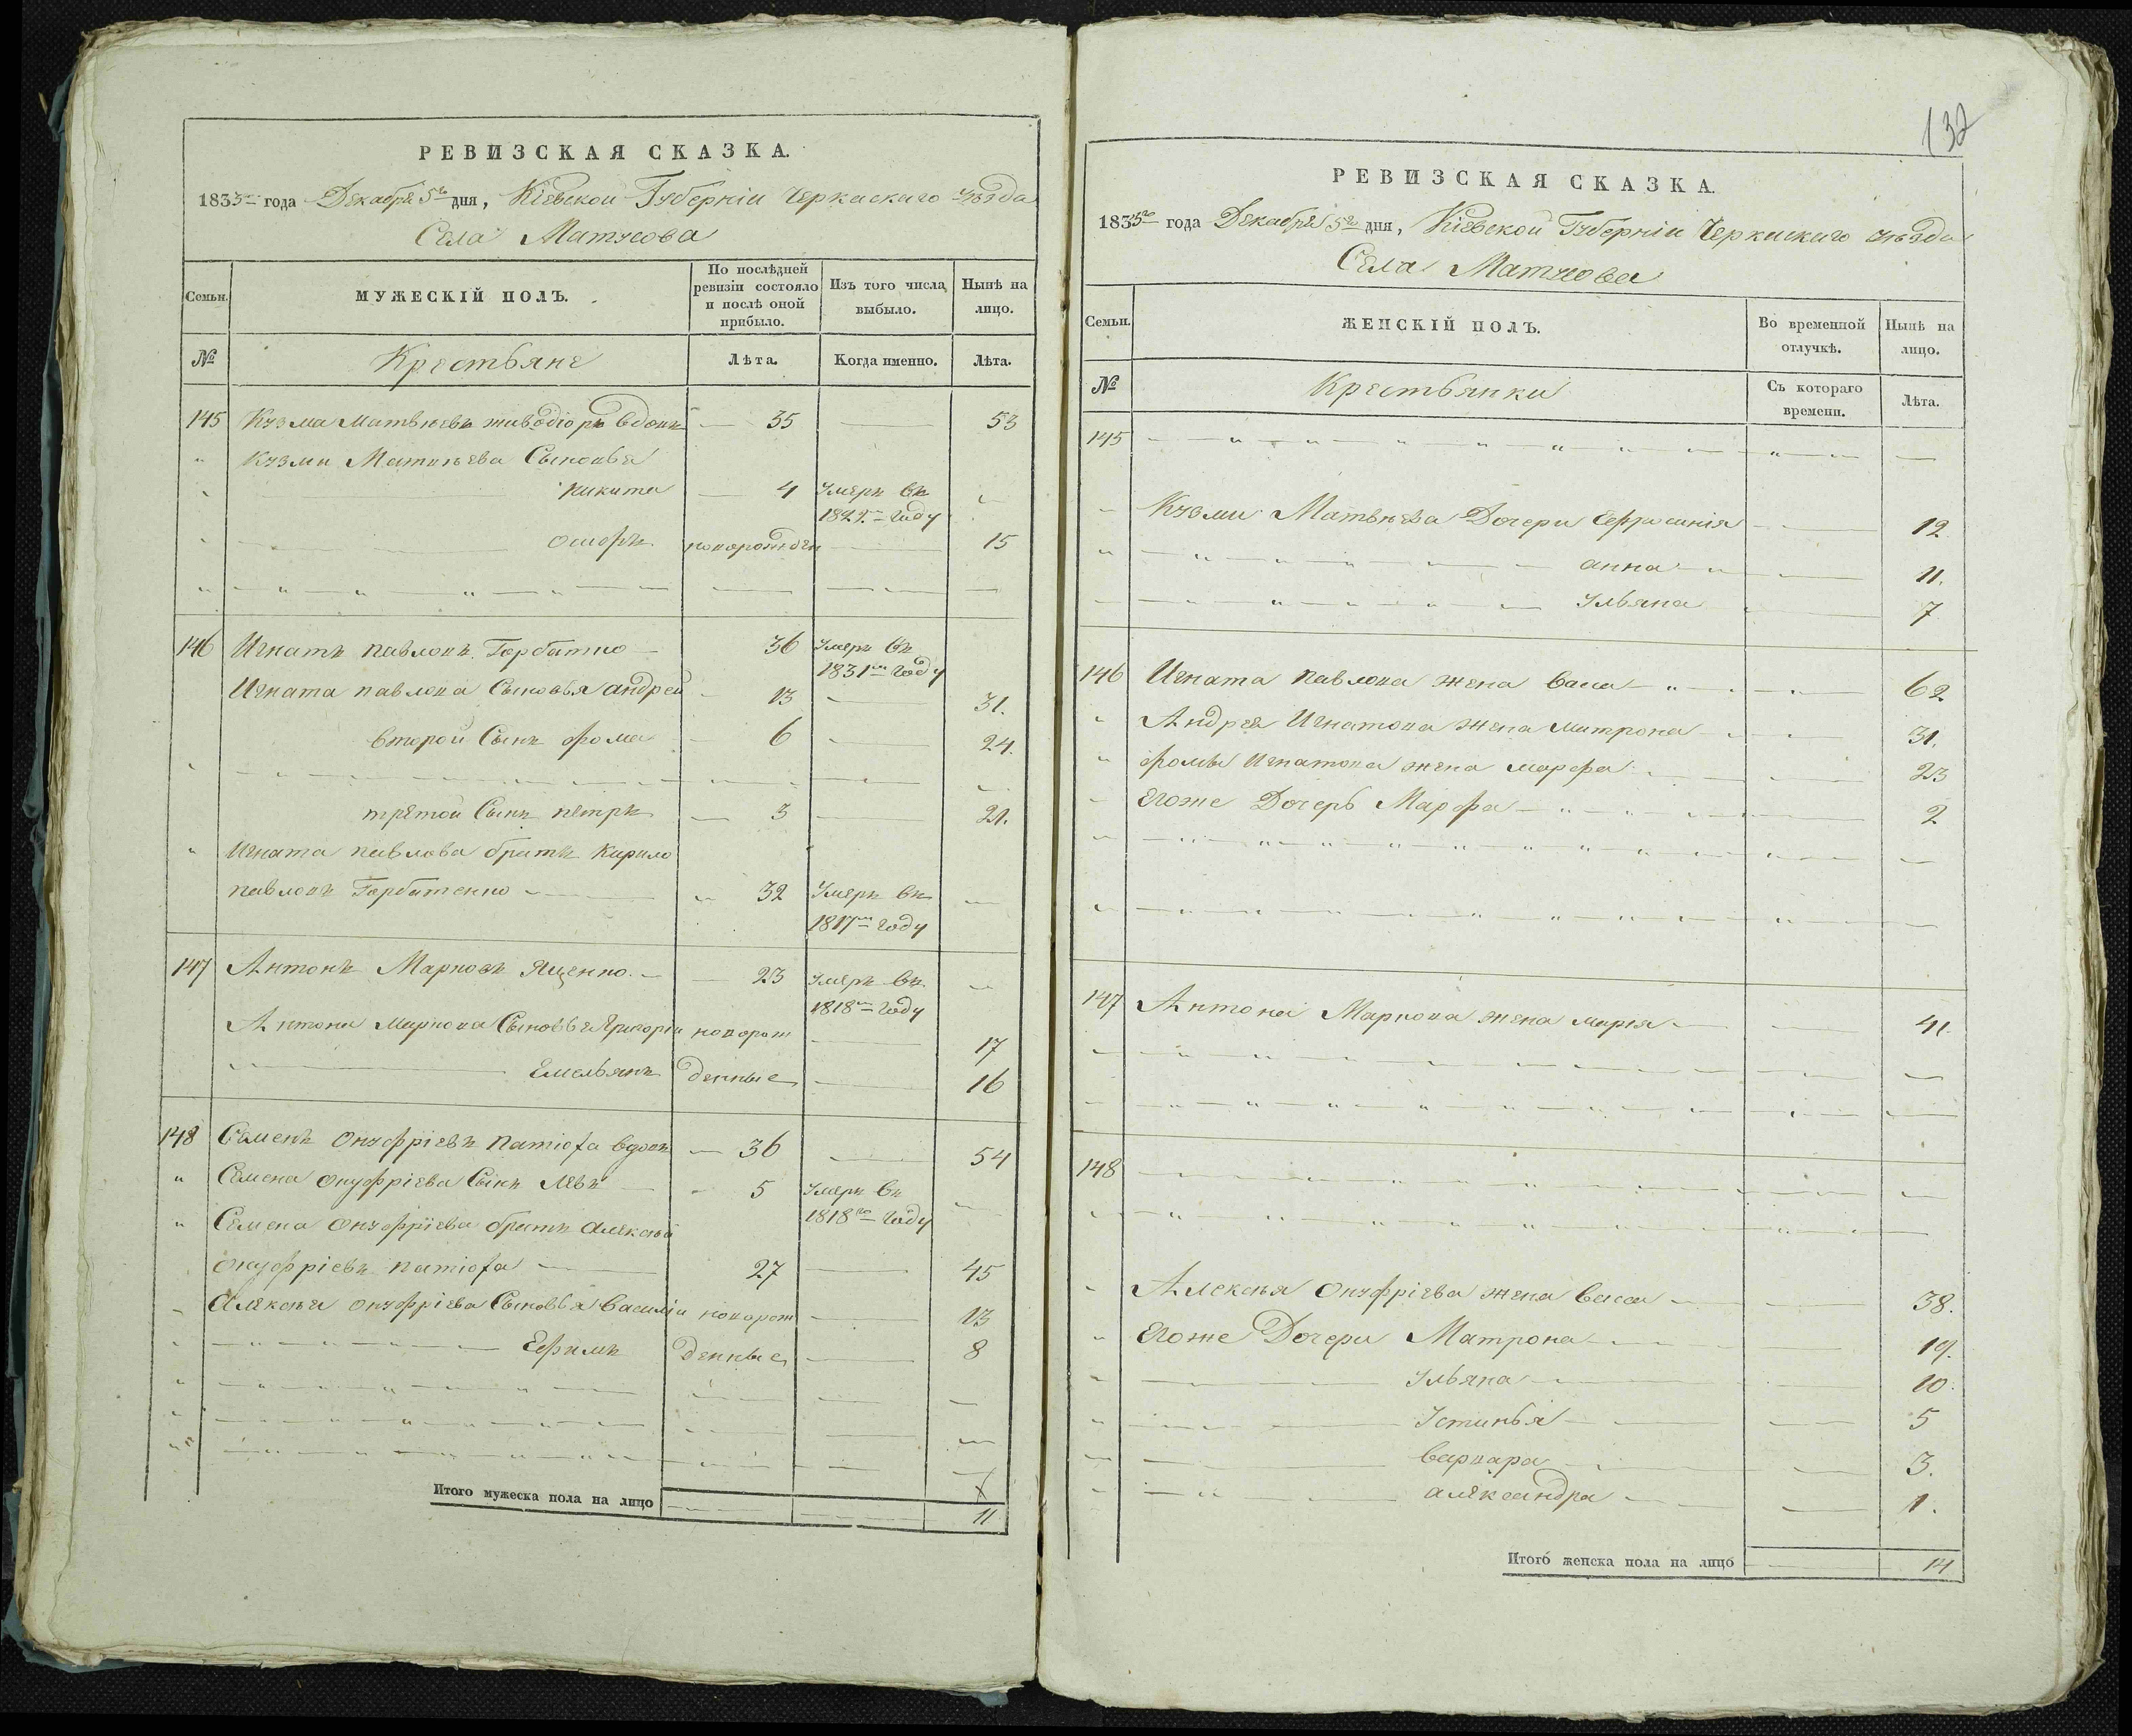 РЕВИЗСКАЯ СКАЗКА.
1835го года Декабря 5го дня, Кіевской Губерніи Черкаского уѣзда
Села Матусова
Семьи.
МУЖЕСКІЙ ПОЛЪ.
По послѣдней ревизіи состояло и послѣ оной прибыло.
Изъ того числа выбыло.
Нынѣ на лицо.
№
Крестьяне
Лѣта.
Когда именно.
Лѣта.
145 Кузма Матвѣевъ вдовъ 35 53
Кузми Матвѣева Сыновья
Никита 4 Умеръ въ
году
Осифъ новорожден 15
146 Игнатъ Павловъ Горбатко 36 Умеръ въ
1831м году
Игната Павлова Сыновья Андрей 13 31.
второй Сынъ Фома 6 24.
третой Сынъ Петръ 3 21.
Игната Павлова братъ Кирило
Павловъ Горбатенко 32 Умеръ въ
1817м году
147 Антонъ Марковъ Яценко 23 Умеръ въ
1818м году
Антона Маркова Сыновья Григорій новорож 17
Емельянъ денные 16
148 Семенъ Онуфріевъ вдовъ 36 54
Семена Онуфріева Сынъ Левъ 5 Умеръ въ
1818го году
Семена Онуфріева братъ Алексѣй
Онуфріевъ 27 45
Алексѣя Онуфріева Сыновья Василій новорож 13
Ефимъ денные 8
Итого мужеска пола на лицо 11
132
РЕВИЗСКАЯ СКАЗКА.
1835го года Декабря 5го дня, Кіевской Губерніи Черкаского уѣзда
Села Матусова
Семьи.
ЖЕНСКІЙ ПОЛЪ.
Во временной отлучкѣ.
Нынѣ на лицо.
№
Крестьянки
Съ котораго времени.
Лѣта.
145
Кузми Матвѣева Дочери Ефросинія 12
анна 11.
Ульяна 7
146 Игната Павлова жена Васа 62
Андрея Игнатова жена Матрона 31.
Фомы Игнатова жена Марфа 23
Егоже Дочерь Марфа 2
147 Антона Маркова жена Марія 41.
148
Алексѣя Онуфріева жена Васса 38.
Егоже Дочери Матрона 19.
Ульяна 10.
Устинья 5
Варвара 3.
Александра 1.
Итого женска пола на лицо 14